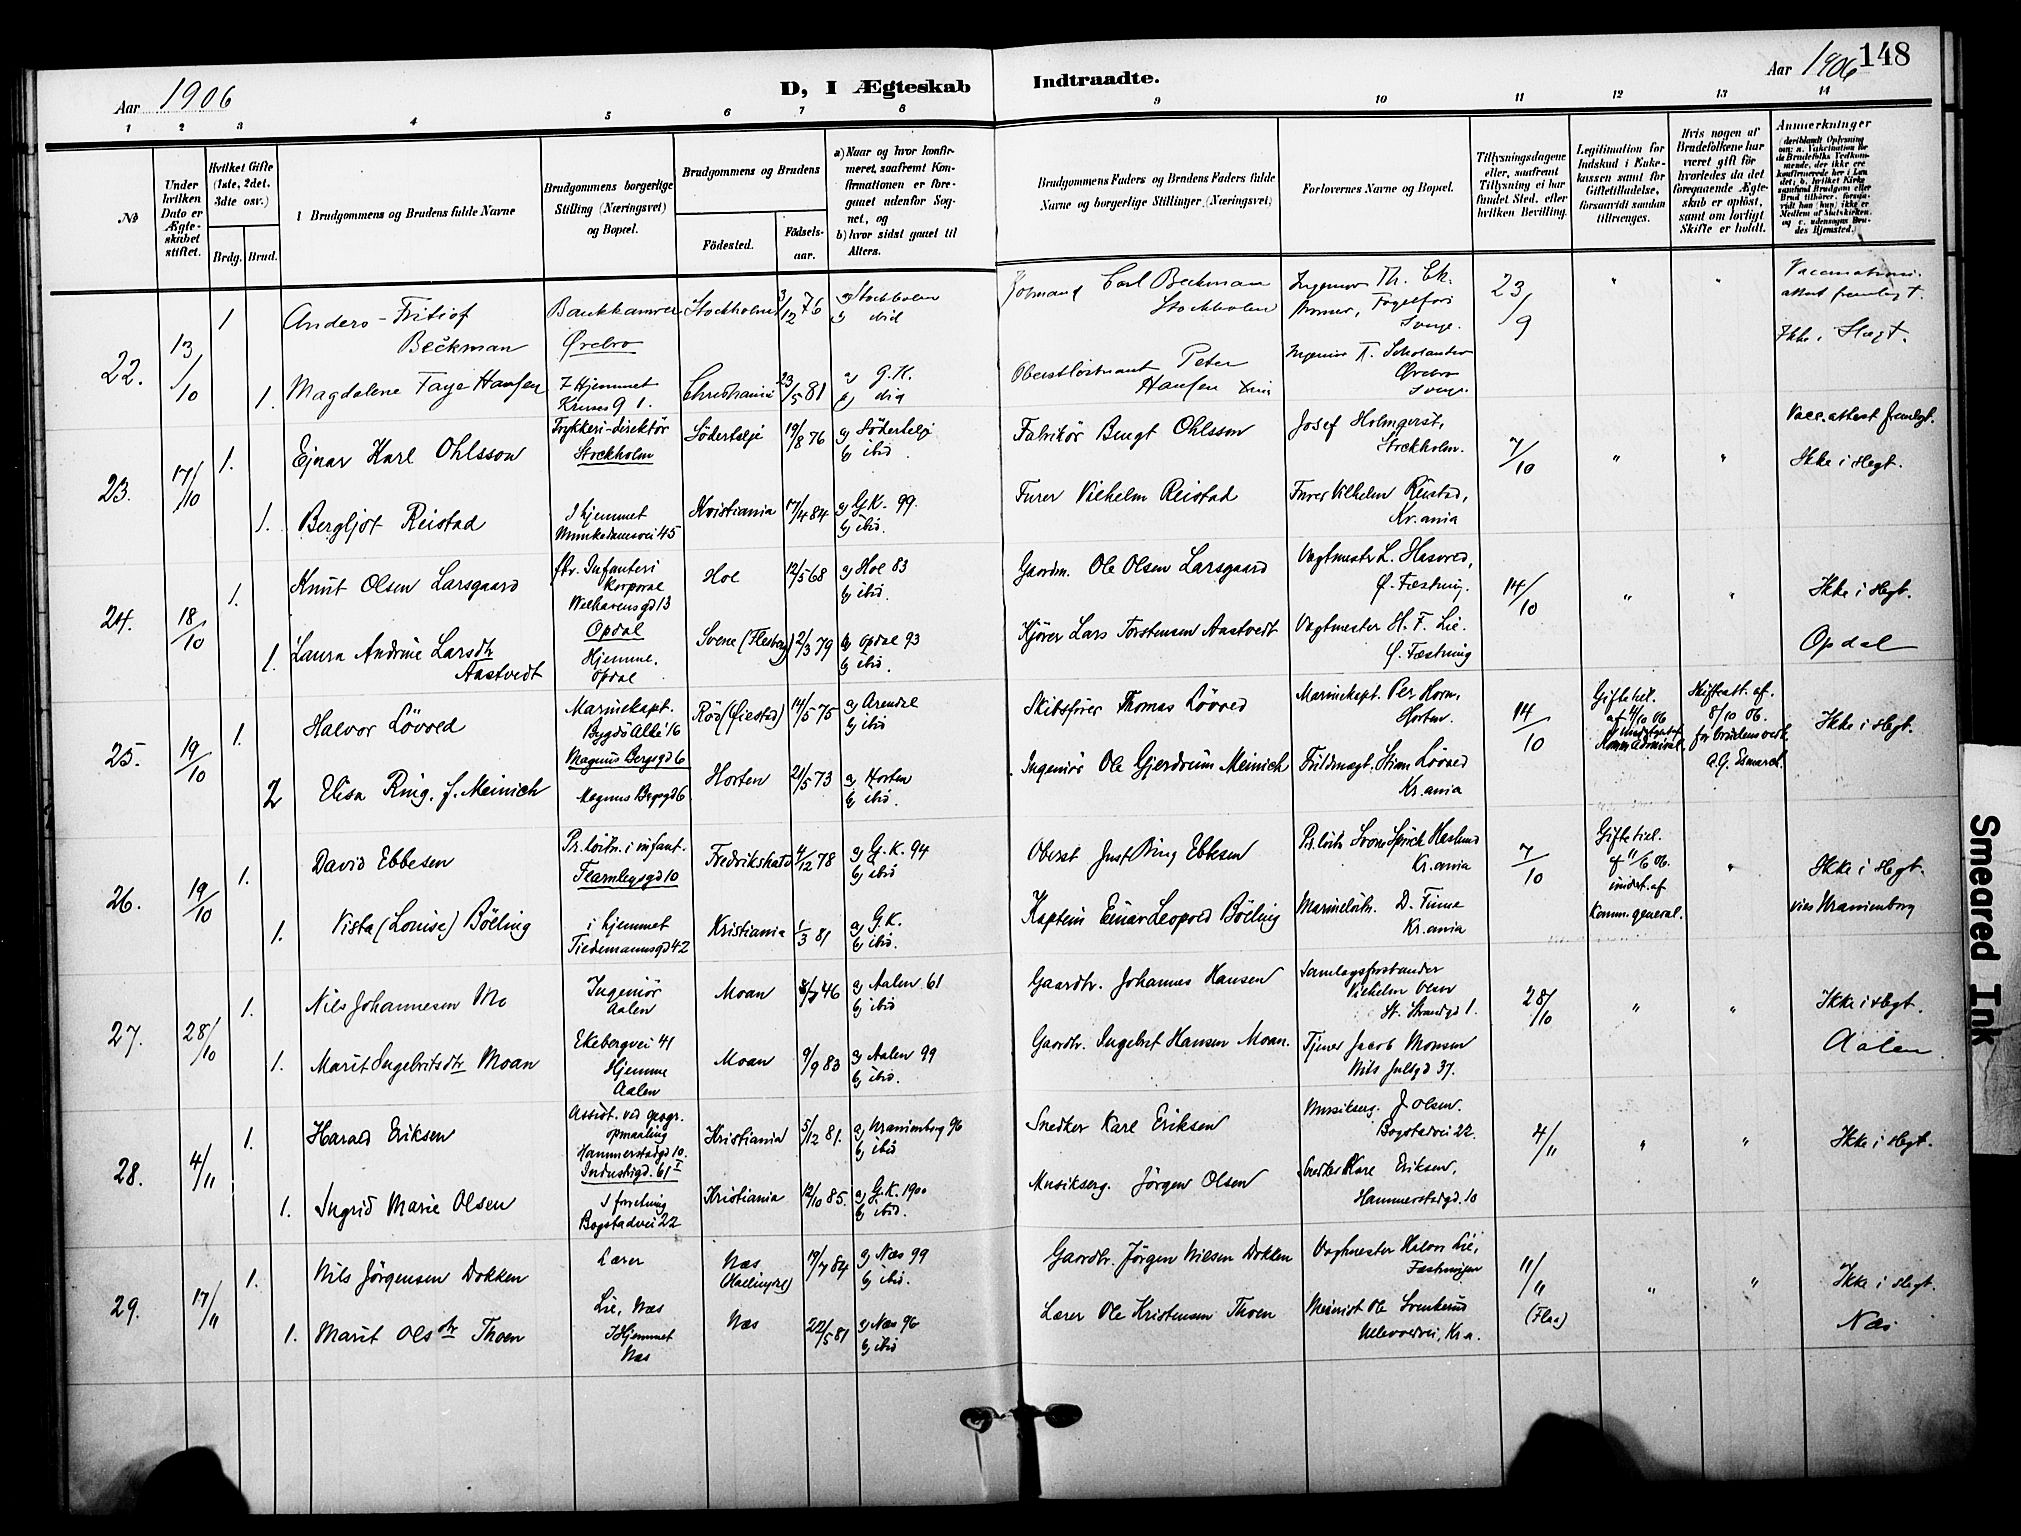 Aar 1906
D, I Ægteskab Indtraadte.
Aar 1906 148
1 2 3 4 5 6 7 8 9 10 11 12 13 14
No
Under hvilken Dato er Ægteskabet stiftet.
Hvilket Gifte (1ste, 2det, 3dte osv.)
Brdg. Brud.
Brudgommens og Brudens fulde Navne
Brudgommens borgerlige Stilling (Næringsvei) og Bopæl.
Brudgommens og Brudens
Födested. Födselsaar.
a) Naar og hvor konfirmeret, saafremt Konfirmationen er foregaaet udenfor Sognet, og
b) hvor sidst gaaet til Alters.
Brudgommens Faders og Brudens Faders fulde Navne og borgerlige Stillinger (Næringsvei)
Forlovernes Navne og Bopæl.
Tillysningsdagene eller, saafremt Tillysning ei har fundet Sted, efter hvilken Bevilling.
Legitimation for Indskud i Enkekassen samt for Giftetilladelse, forsaavidt saadan tiltrænges.
Hvis nogen af Brudefolkene har været gift för hvorledes da det foregaaende Ægteskab er oplöst, samt om lovligt Skifte er holdt.
Anmerkninger
22. 13/10 1 Anders-Fritiof Beckman
Bankkamrer Örebro
Stockholm 3/12 76
a) Stockholm b) ibid
Carl Beckman Stockholm
Ingeniör Th. Ek
23/9 " "
Ikke i Slægt.
1. Magdalene Faye Hansen
I Hjemmet
Christiania 23/5 81
a) G.K. b) ibid
Oberstlöitnant Peter Hansen
Örebro
23. 17/10 1. Ejnar Karl Ohlsson
Trykkeri-direktör Stockholm
Södertelje 19/8 76
a) Södertelje b) ibid.
Fabrikör Bengt Ohlsson
Josef Holmqvist, Stockholm.
7/10 " "
Vacc.attest fremlagt.
Ikke i slegt.
1. Bergljot Reistad
I hjemmet Munkedamsvei 45
Kristiania 17/4 84
a) G.K. 99. b) ibid.
Furer Vilhelm Reistad
Furer Vilhelm Reistad, Kr.ania
24. 18/10 1. Knut Olsen Larsgaard
Infanteri korporal Welhavensgd 13 Opdal
Hol 12/5 68
a) Hol 83 b) ibid.
Gaardm. Ole Olsen Larsgaard
Vagtmester L. Hasved, Fæstning.
14/10 " "
Ikke i slegt.
1. Laura Andrine Larsdtr Aastvedt
Hjemme, Opdal
Svene (Flesberg) 2/3 79
a) Opdal 93 b) ibid.
Kjörer Lars Torstensen Aastvedt
Vagtmester H. F. Lie. Fæstning
Opdal
25. 19/10 1. Halvor Lövved
Marinekapt. Bygdö Allé 16 Magnus Bergsgd 6
Röd (Öiestad) 14/5 75
a) Arendal b) ibid
Skibsförer Thomas Lövved
Marinekapt. Per Horn, Horten.
14/10
Giftetil. af 4/10 06 Komm. Admiral.
Skifteatt. af 8/10 06. for brudens vedk. A.G. Esmarch.
Ikke i slegt.
2 Elisa Ring, f. Meinich
Magnus Bergsgd 6
Horten 21/5 73
a) Horten b) ibid.
Ingeniör Ole Gjerdrum Meinich
Fuldmægt. Lövved Kr.ania
26. 19/10 1. David Ebbesen
Pr.löitn. i infant. Fearnleysgd 10
Fredrikshald 4/12 78
a) G.K. 94 b) ibid
Oberst Just Bing Ebbesen
Haslund Kr.ania
7/10
Giftetil. af 11/6 06. undert. af Komm. general. "
Ikke i slegt.
viet Uranienborg
1. Vista (Louise) Bölling
i hjemmet Tiedemannsgd 42
Kristiania 1/3 81
a) G.K. b) ibid.
Kaptein Einar Leopold Bölling
Marinelöitn. D. Finne Kr.ania
27. 28/10 1. Nils Johannesen Mo
Ingeniör Aalen
Moan 8/7 46
a) Aalen 61 b) ibid
Gaardbr. Johannes Hansen
Samlagsforstander Vilhelm Olsen St. Strandgd 1.
28/10 " "
Ikke i slegt.
1. Marit Ingebritsdtr Moan
Ekebergvei 41 Hjemme Aalen
Moan 9/9 83
a) Aalen 99 b) ibid.
Gaardbr. Ingebret Hansen Moan.
Tjener Jacob Monsen Nils Julsgd 37.
Aalen
28. 4/11 1. Harald Eriksen
Assist. ved geogr. opmaaling Hammerstadgd 10. Industrigd. 61 I
Kristiania 5/12 81.
a) Uranienborg 96 b) ibid
Snedker Karl Eriksen
Musikserg. J. Olsen. Bogstadvei 22.
4/11 " "
Ikke i slegt.
1. Ingrid Marie Olsen
I forretning Bogstadvei 22
Kristiania 12/10 85.
a) G.K. 1900 b) ibid.
Musikserg. Jörgen Olsen
Snedker Karl Eriksen, Hammerstadgd. 10
29. 17/11 1. Nils Jörgensen Dokken
Lærer Lie, Næs
Næs (Hallingdal) 19/7 84
a) Næs 99 b) ibid.
Gaardbr. Jörgen Nilsen Dokken
Vagtmester Halvor Lie, Fæstningen
11/11 (Flaa) " "
Ikke i slegt.
1. Marit Olsdtr Thoen
I Hjemmet Næs
Næs 22/5 81
a) Næs 96 b) ibid
Lærer Ole Kristensen Thoen
Ole Svenkerud Ullevoldvei, Kr.a.
Næs
Smeared Ink